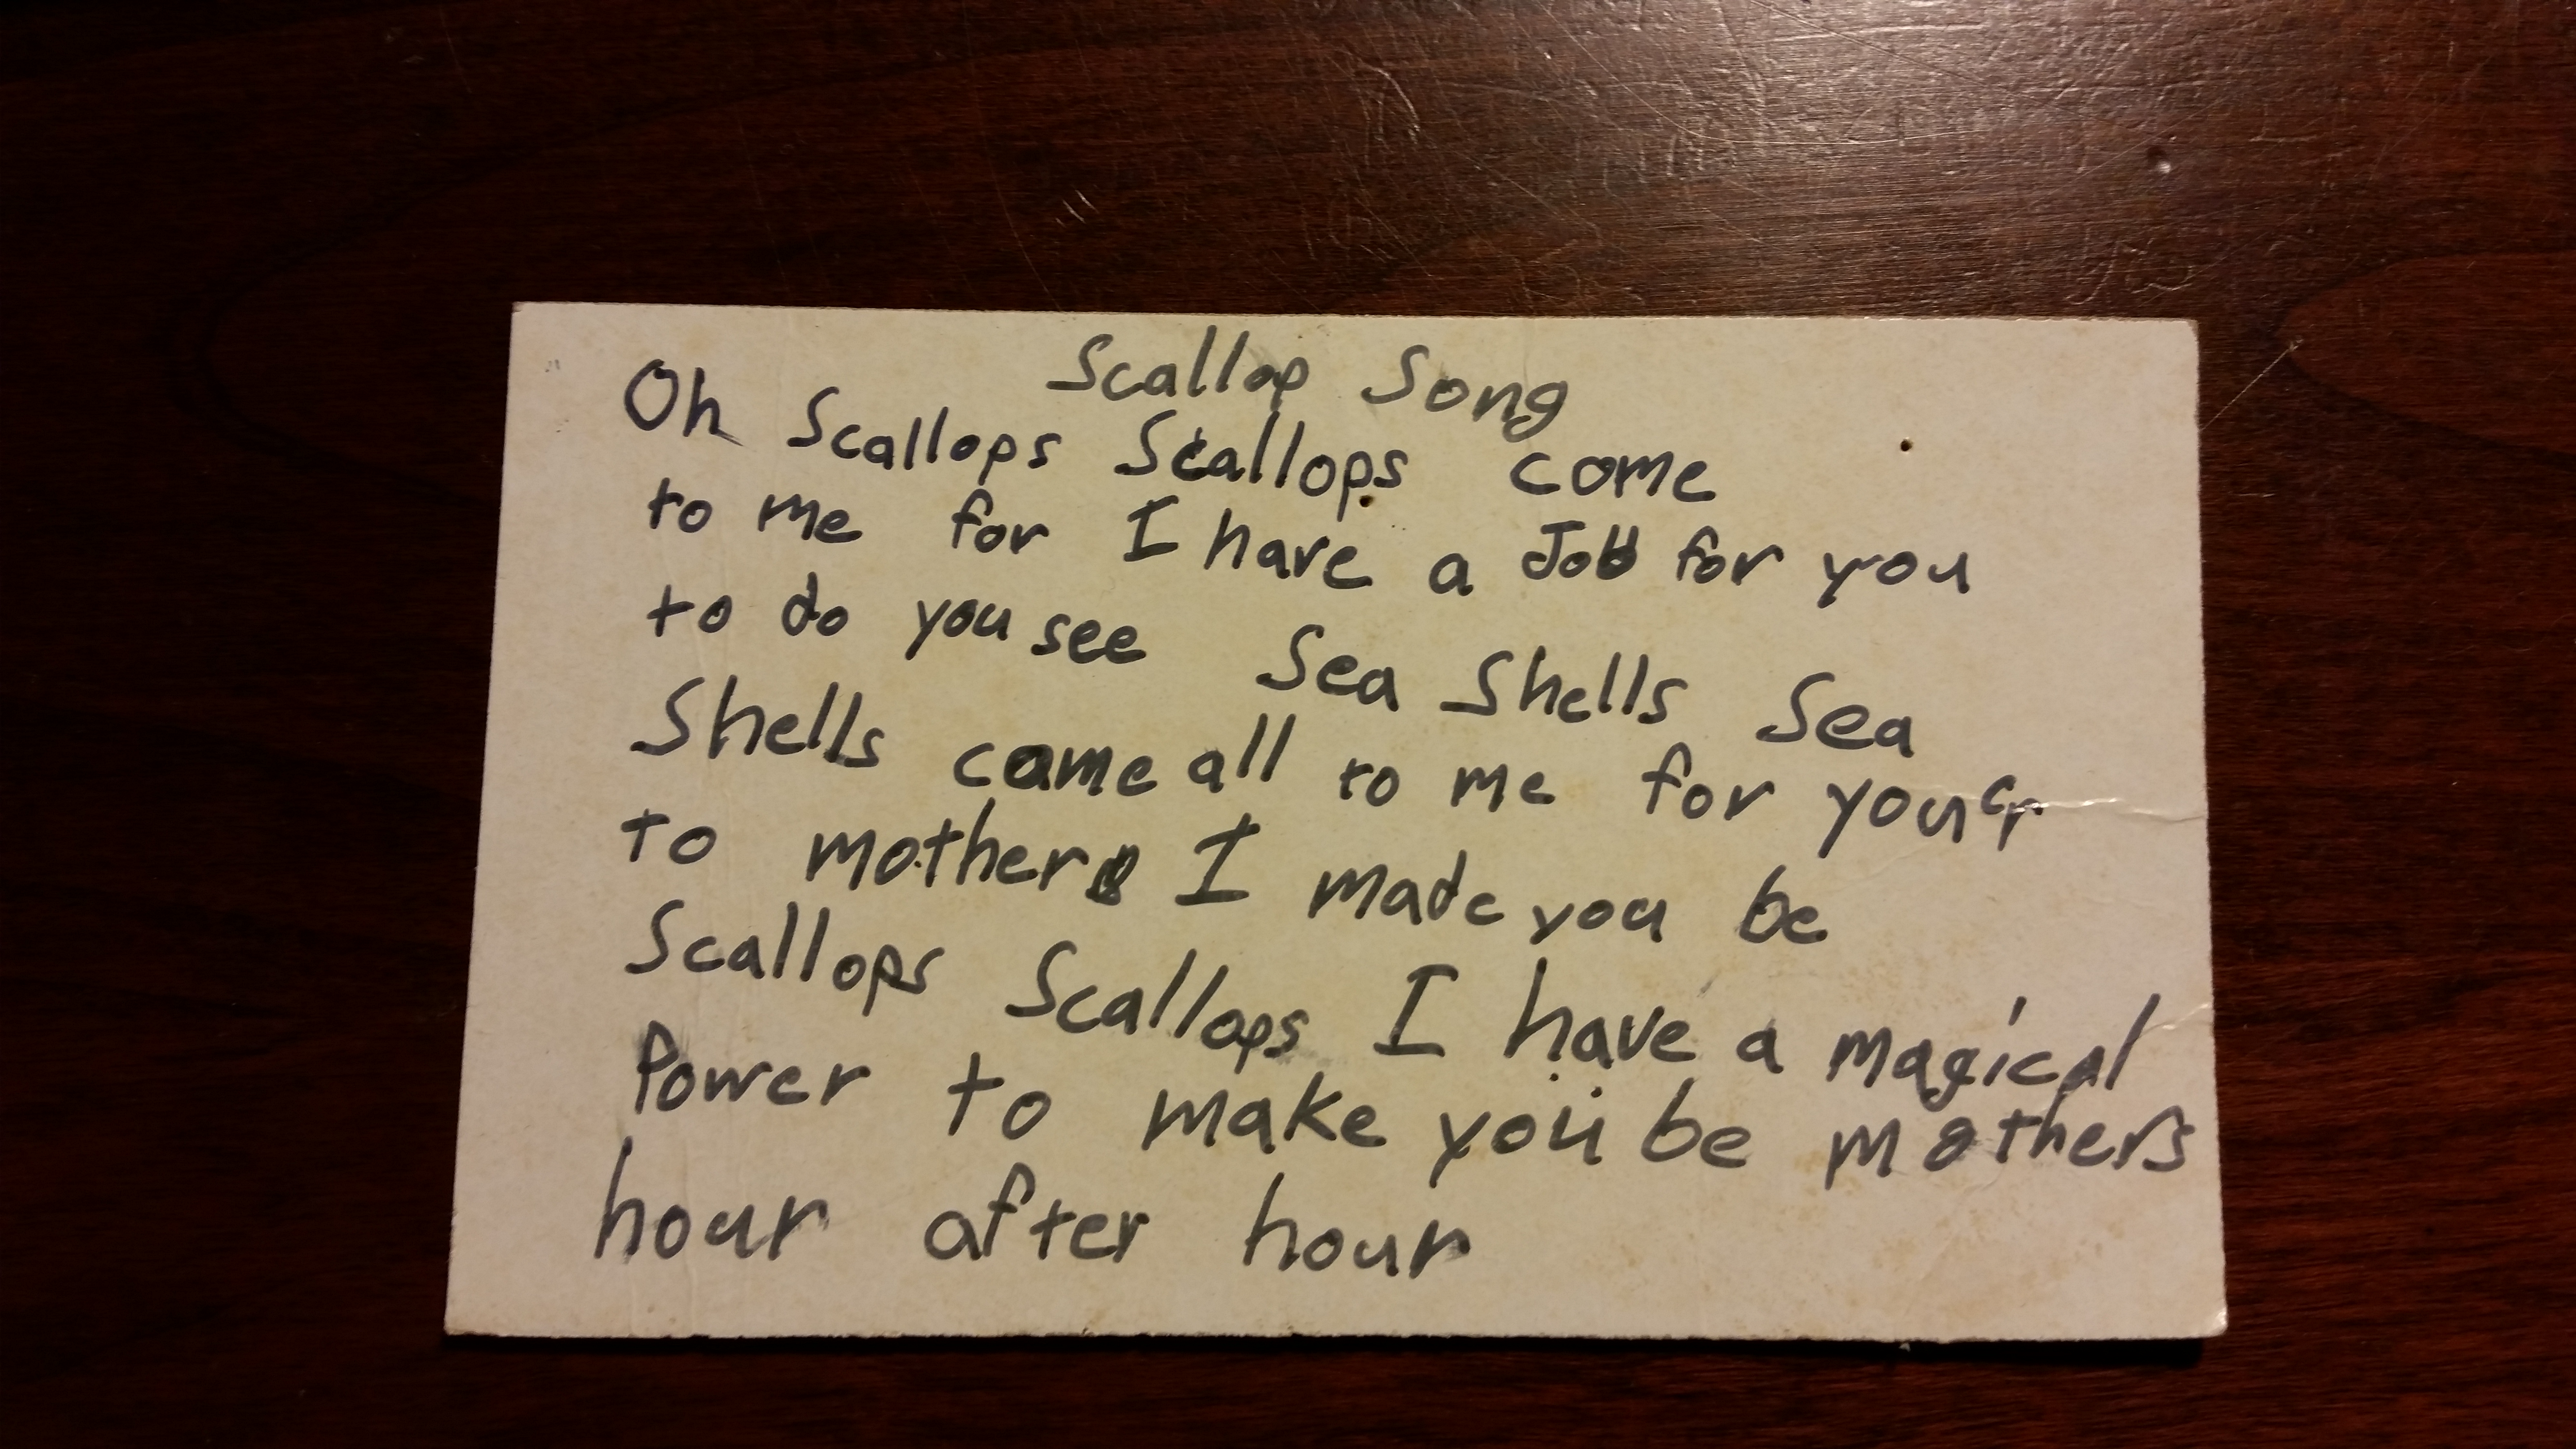 Scallop Song
Oh Scallops Scallops come
to me for I have a Job for you
to do you see Sea Shells Sea
Shells come all to me for
to mother I made you be
Scallops Scallops I have a magical
Power to make you be mothers
hour after hour